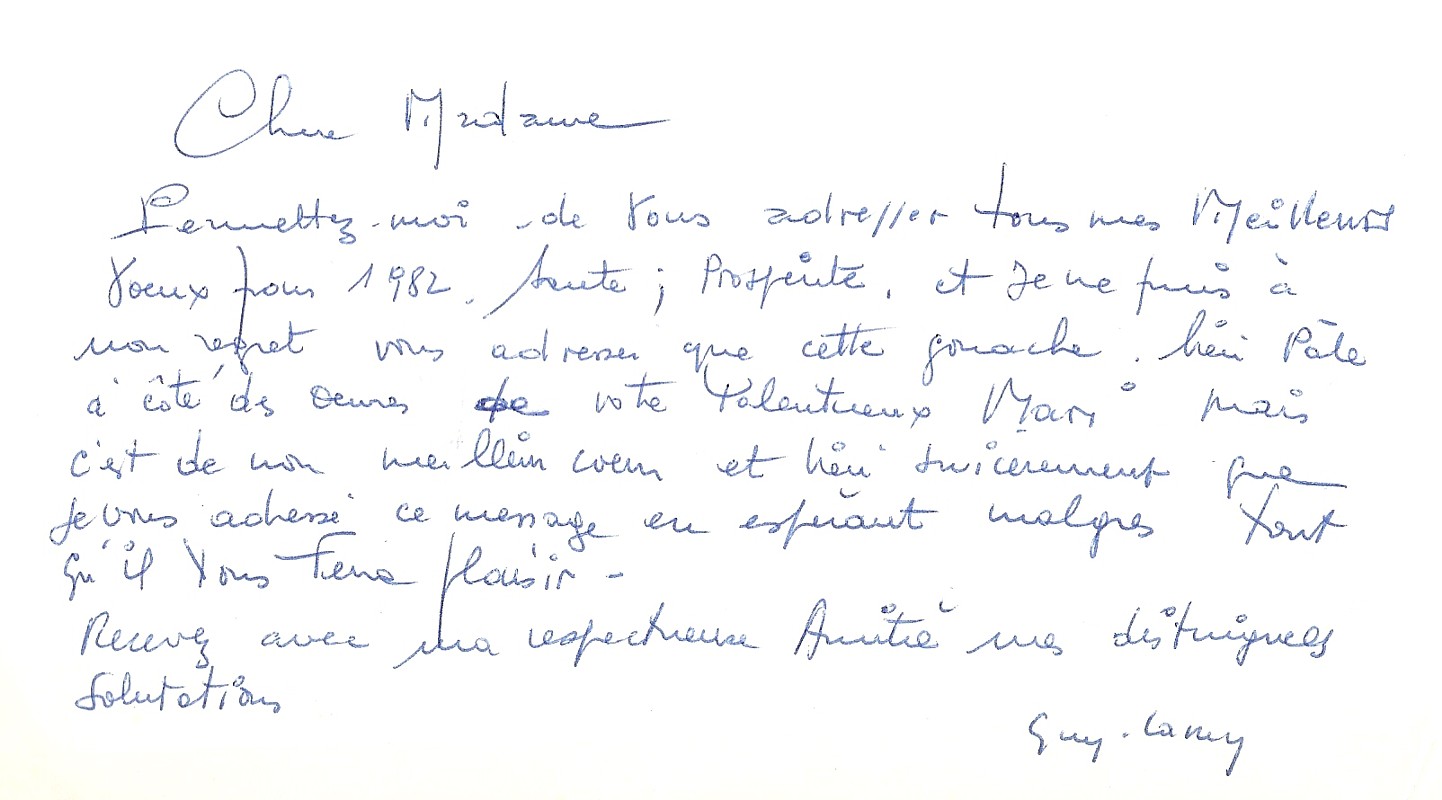 Chere Madame
Permettez-moi de Vous adresser tous mes Meilleurs
Voeux pour 1982. Sante ; Prosperite, et Je ne puis à
mon regret vous adresser que cette gouache. bien Pâle
à côté des Oeuvres de votre Talentueux Mari mais
c'est de mon meilleur coeur et bien sincèrement que
je vous adresse ce message en espérant malgres tout
qu'il Vous Fera plaisir -
Recevez avec ma respectueuse Amitié mes distinguees
Salutations
Guy-Lamy